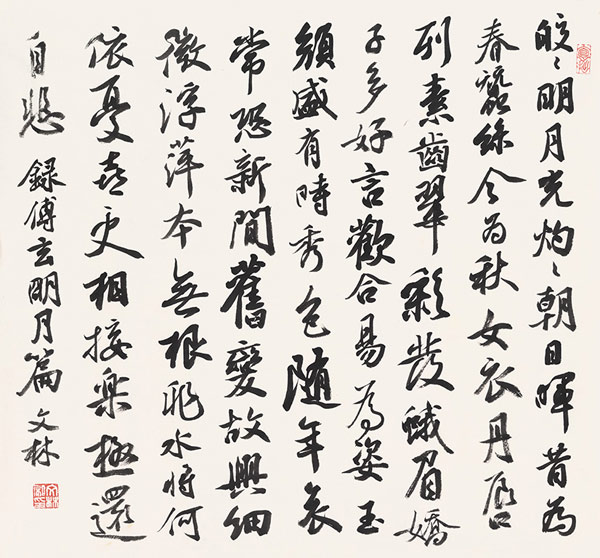 皎〻明月光灼〻朝日暉昔為
春蠶絲今為秋女衣丹唇
列素齒翠彩發蛾眉嬌
子多好言歡合易為姿玉
顏盛有時秀色隨年衰
常恐新間舊變故興細
微浮萍本無根非水將何
依憂喜更相接樂極還
自悲 錄傅玄明月篇 文林